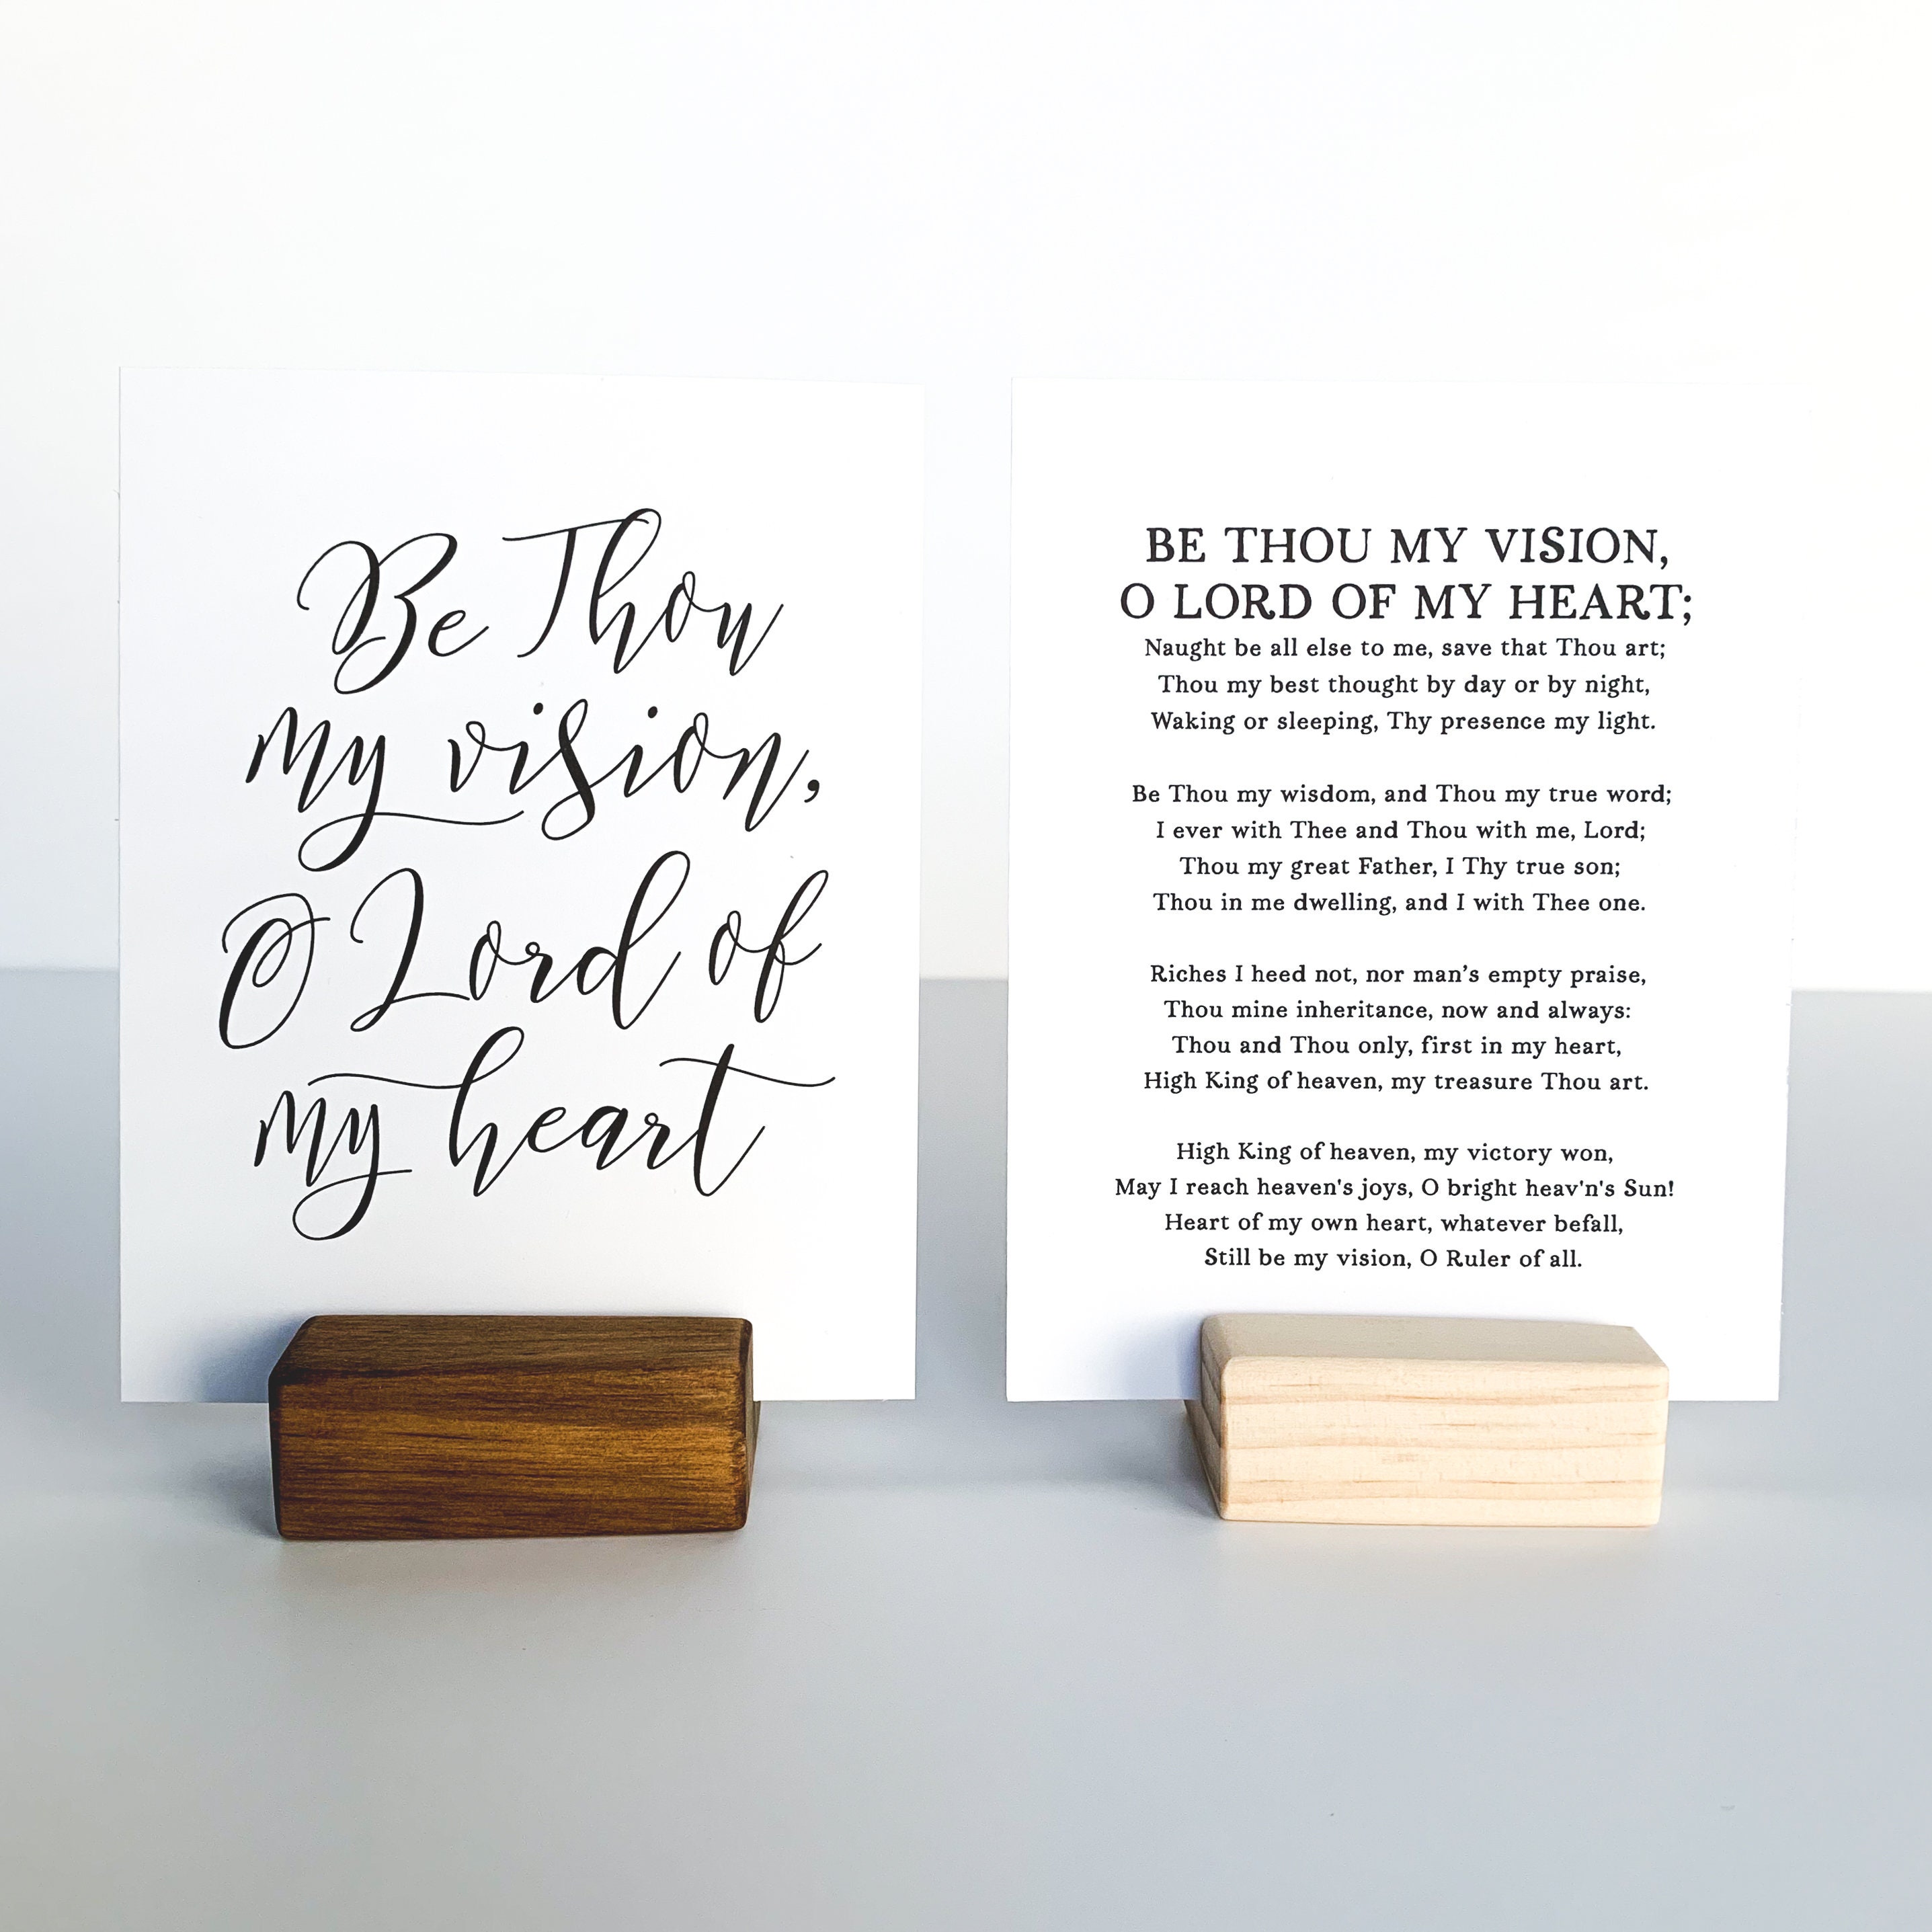 Be Thou
my vision,
O Lord of
my heart
BE THOU MY VISION,
O LORD OF MY HEART;
Naught be all else to me, save that Thou art;
Thou my best thought by day or by night,
Waking or sleeping, Thy presence my light.
Be Thou my wisdom, and Thou my true word;
I ever with Thee and Thou with me, Lord;
Thou my great Father, I Thy true son;
Thou in me dwelling, and I with Thee one.
Riches I heed not, nor man’s empty praise,
Thou mine inheritance, now and always:
Thou and Thou only, first in my heart,
High King of heaven, my treasure Thou art.
High King of heaven, my victory won,
May I reach heaven's joys, O bright heav'n's Sun!
Heart of my own heart, whatever befall,
Still be my vision, O Ruler of all.